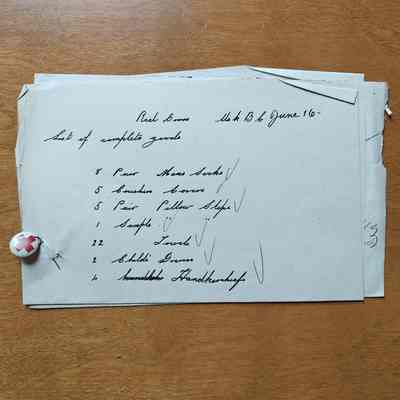 Red Cross Ush B C June 16-
List of complete goods
8 Pair Mens Socks
5 Cushen Covers
5 Pair Pillow Slips
1 Single " "
22 Towels
2 Childs Dresses
Handkerchief